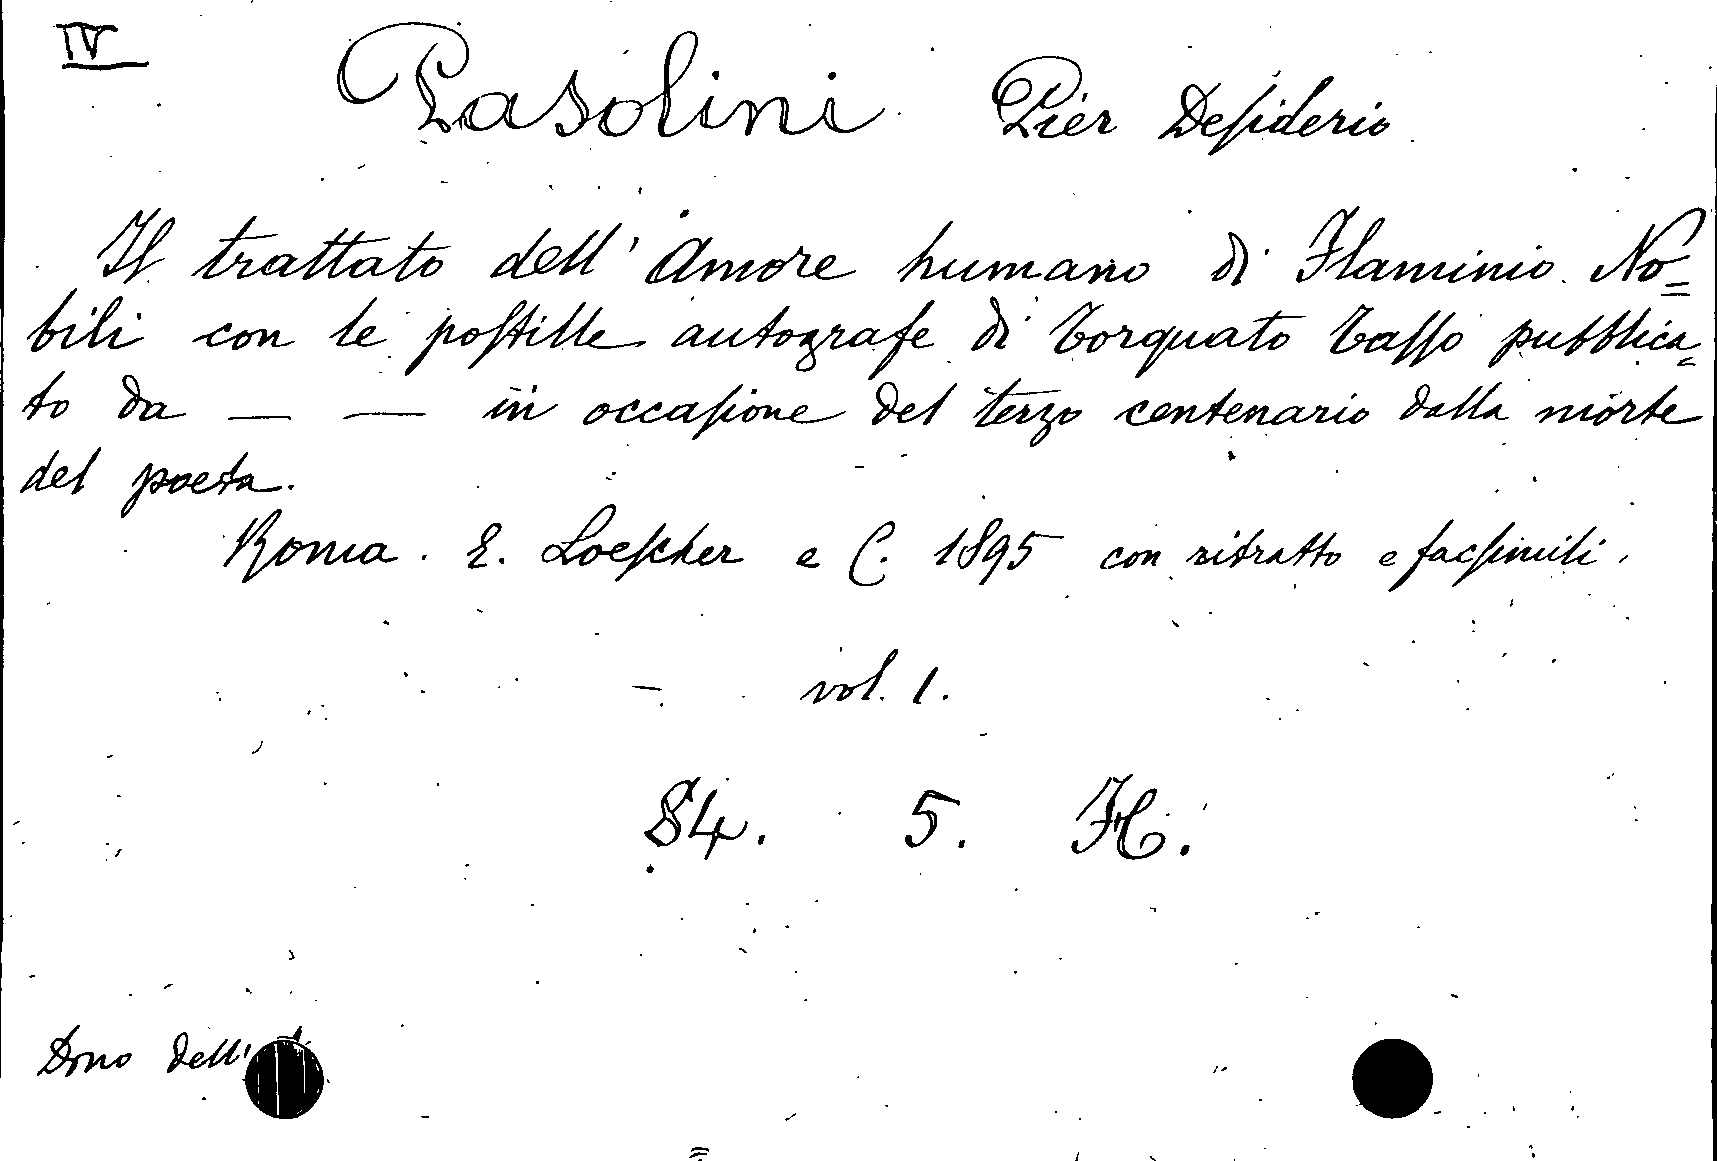 IV
Pasolini Pier Desiderio
Il trattato dell' Amore humano di Flaminio No=
bili con le postille autografe di Torquato Tasso pubblica=
to da — — in occasione del terzo centenario dalla morte
del poeta.
Roma. E. Loescher e C. 1895 con ritratto e facsimili.
vol. 1.
84. 5. H.
Dono dell'